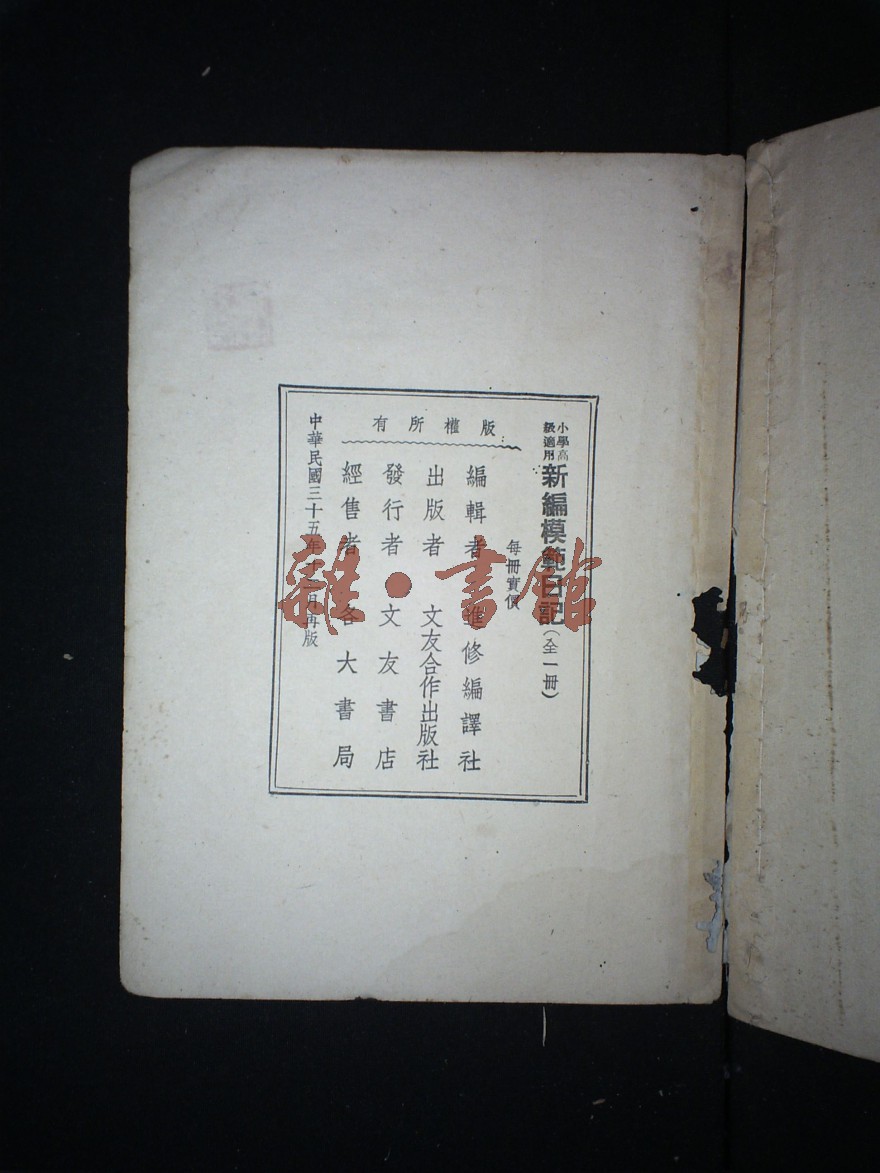 小學高級適用
新編模範日記（全一冊）
每冊實價
版權所有
編輯者 進修編譯社
出版者 文友合作出版社
發行者 文友書店
經售者 各大書局
中華民國三十五年十二月再版
雜·書館